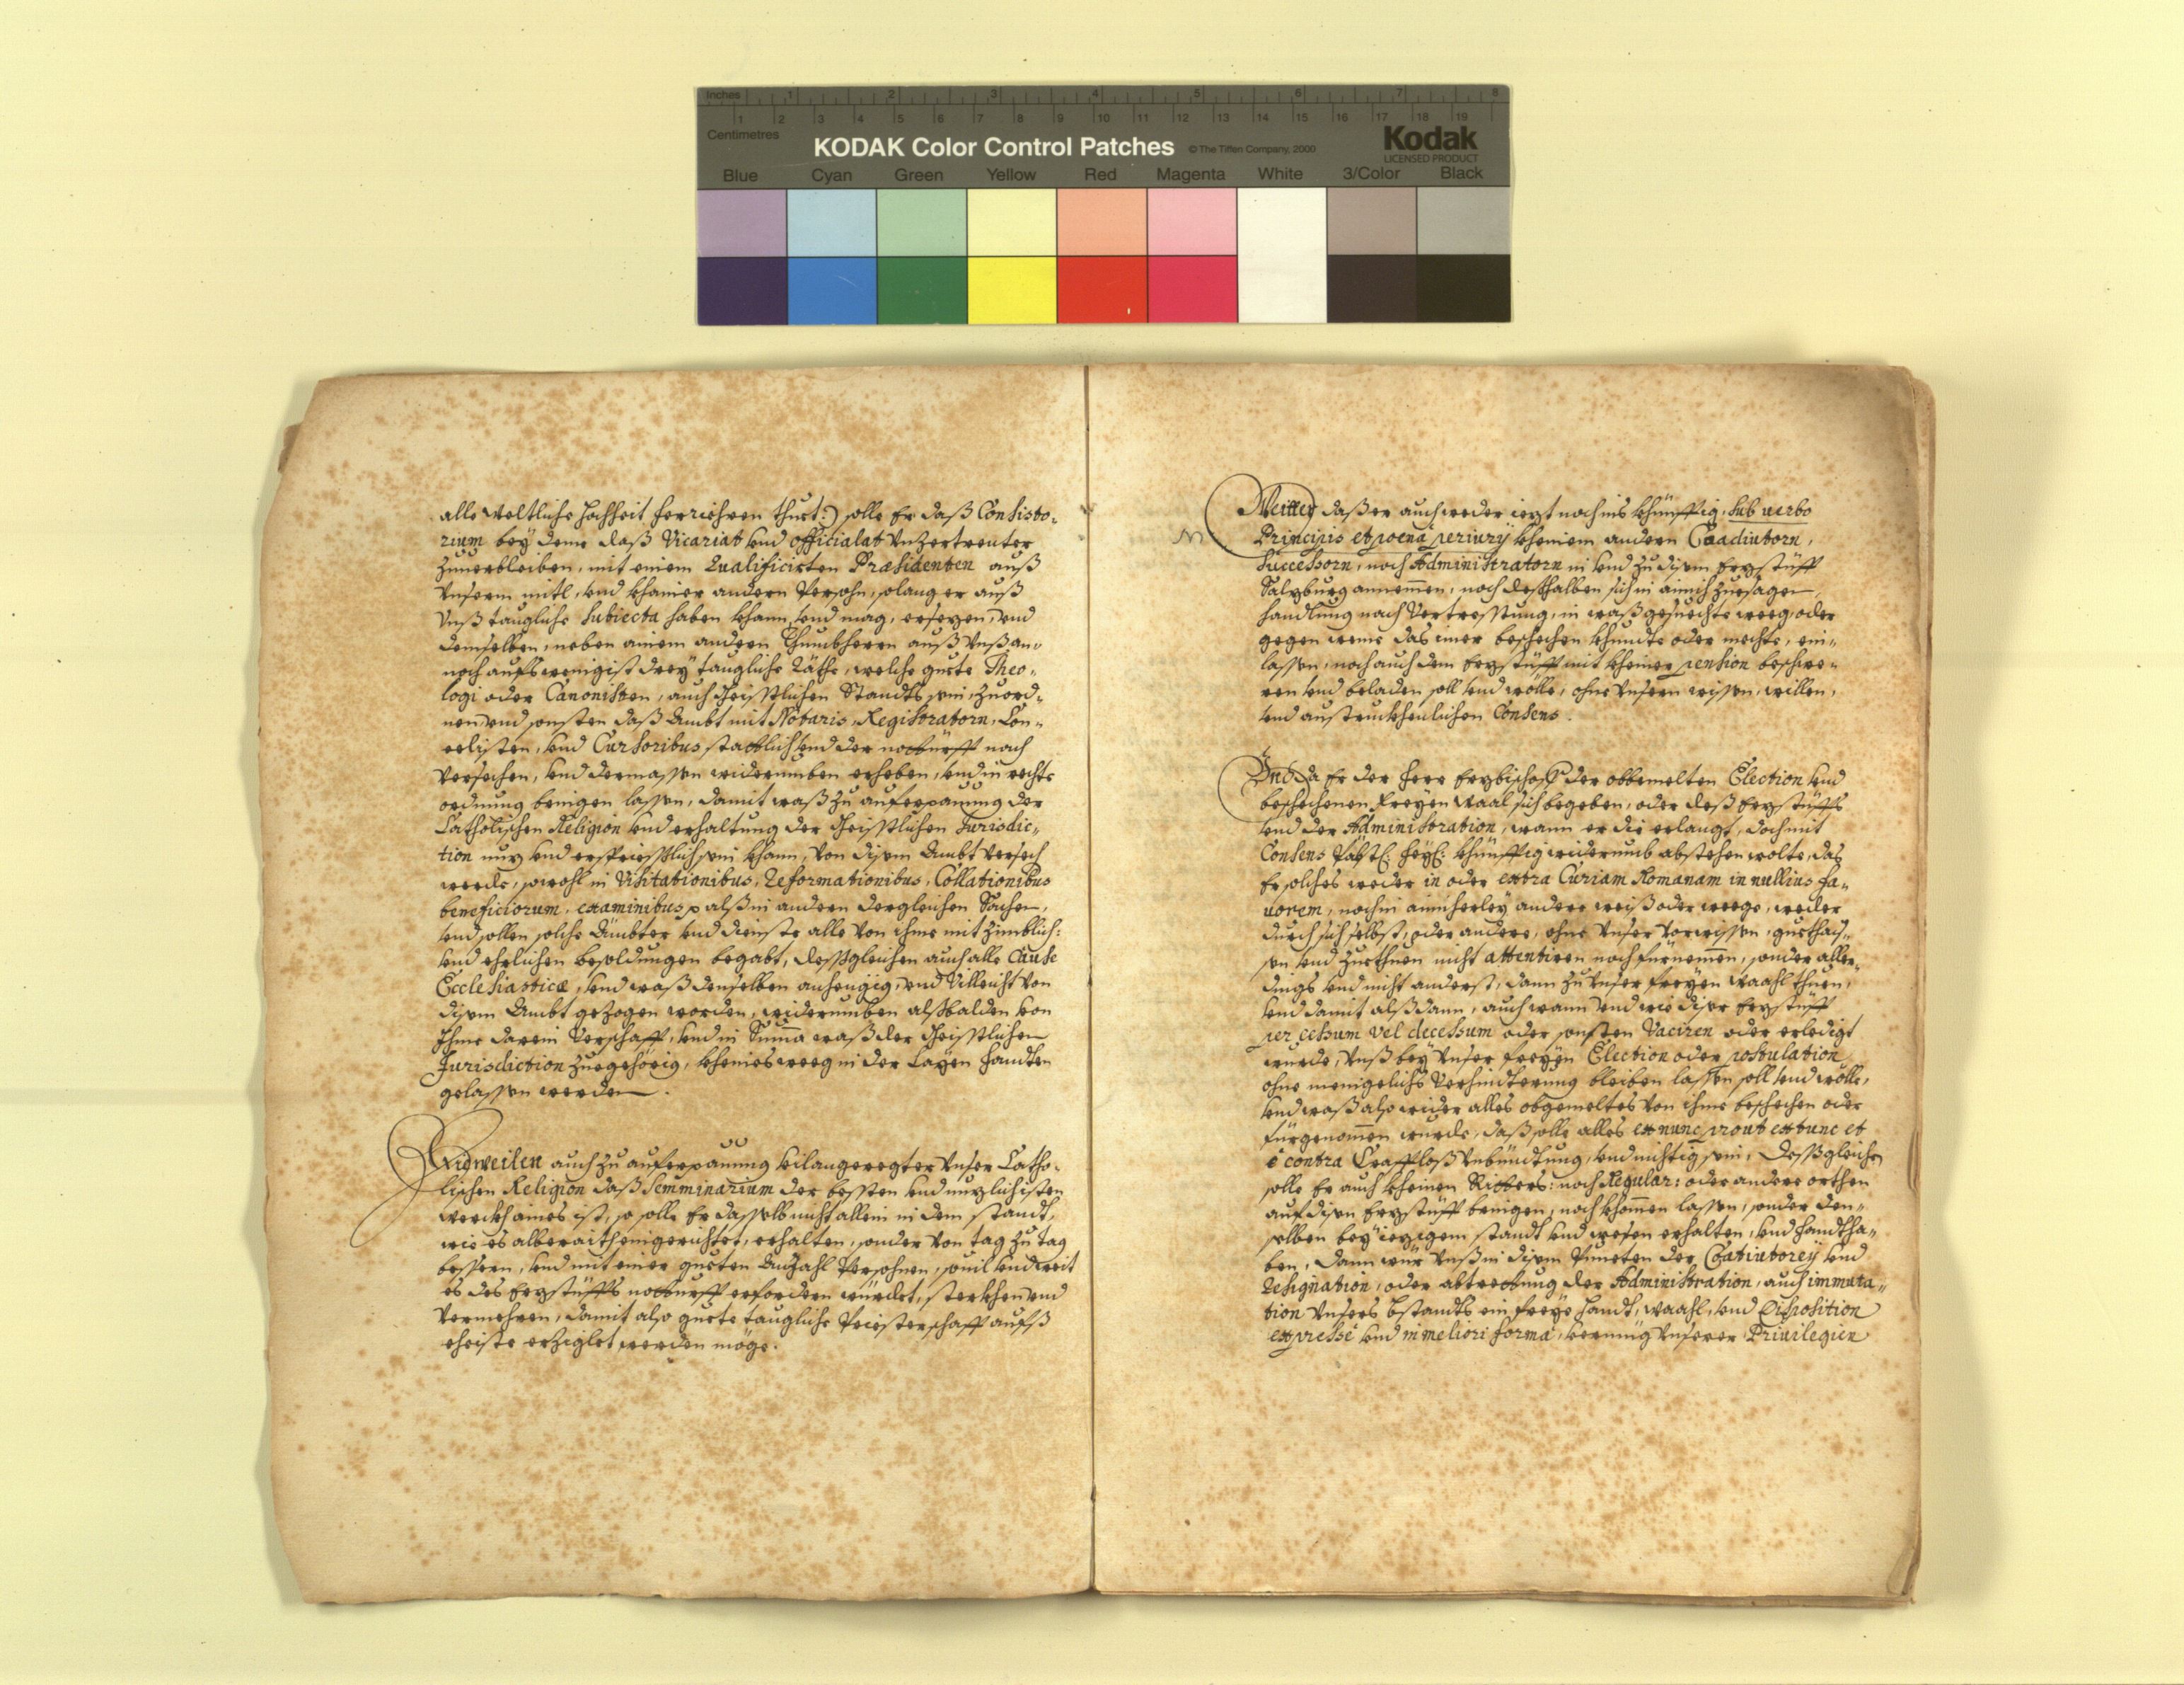 Inches 1 2 3 4 5 6 7 8
Centimetres 1 2 3 4 5 6 7 8 9 10 11 12 13 14 15 16 17 18 19
KODAK Color Control Patches © The Tiffen Company, 2000 Kodak
LICENSED PRODUCT
Blue Cyan Green Yellow Red Magenta White 3/Color Black
alle weltliche Hochheit herriehren thuet:) solle Er daß Consisto-
rium bey deme daß Vicariat vnd officialat vnzertrenter
zuuerbleiben, mit einem Qualificirten Præsidenten auß
vnserm mitl, vnd khainer andern Persohn, solang er auß
vnß taugliche Subiecta haben khann, vnd mag, ersezen, vnd
demselben, neben ainem andern Thumbherrn auß vnß an-
noch aufs wenigist drey taugliche Räthe, welche guete Theo-
logi oder Canonisten, auch Geistlichen Standts sein, zuord-
nen, vnd sonsten daß Ambt mit Notaris, Registratorn, Can-
celisten, vnd Cursoribus, stattlich vnd der notturfft nach
versechen, vnd dermassen widerumben erheben, vnd in rechte
ordnung bringen lassen, damit waß zu auferpauung der
Catholischen Religion vnd erhaltung der Geistlichen Jurisdic-
tion nuz vnd ersprießlich sein khann, von disem Ambt versech
werde, sowohl in Visitationibus, Reformationibus, Collationibus
beneficiorum, examinibus, alß in andern dergleichen Sachen,
vnd sollen solche Ämbter vnd dienste alle von ihme mit zimblich:
vnd ehrlichen besoldungen begabt, deßgleichen auch alle Causæ
Ecclesiasticæ, vnd waß denselben anhengig, vnd villeicht von
disem Ambt gezogen worden, widerumben alßbalden von
Ihme darein verschafft, vnd in Summa waß der Geistlichen
Jurisdiction zuegehörig, kheines weeg in der Layen Handten
gelassen werden.
Vndweilen auch zu auferpauung vilangeregter vnser Catho-
lischen Religion daß Semminarium der bessten vnd nuzlichisten
werckh aines ist, so solle Er dasselb nicht allein in dem standt,
wie es alberaith eingerichtet, erhalten, sonder von tag zu tag
bessern, vnd mit einer gueten Anzahl Persohnen, souil vnd weit
es des Erzstüffts notturfft erfordern würdet, sterkhen vnd
vermehren, damit also guete taugliche Priesterschafft aufs
eheiste erziglet werden möge.
Weitter daß er auch weder iezt noch ins khünfftig, sub uerbo
Principis et poena periurÿ kheinem andern Coadiutorn,
Successorn, noch Administratorn in vnd zu disem Erzstüfft
Salzburg annemmen, noch desthalben sich in ainich zuesagen,
handlung nach Vertresstung, in waß gesuechte weeg, oder
gegen weme das imer beschechen khundte oder mechte, ein-
lassen, noch auch dem Erzstüfft mit kheiner pension beschwe-
ren vnd beladen soll vnd wölle, ohne vnsern wissen, willen,
vnd austruckhenlichen Consens.
Vnd da Er der Herr Erzbischoff der obbemelten Election vnd
beschechenen freyen Waal sich begeben, oder deß Erzstüffts
vnd der Administration, wann er die erlangt, doch mit
Consens Päbstl: Heyl: khünfftig widerumb abstehen wolte, das
Er solches weder in oder extra Curiam Romanam in nullius fa-
uorem, noch in ainicherley andere weiß oder weege, weder
durch sich selbst, oder andere, ohne vnser vorwissen, guethais-
sen vnd zuethuen nicht attentiren noch fürnemmen, sonder aller-
dings vnd nicht anderst, dann zu vnser freyen waahl thuen,
vnd damit alßdann, auch wann vnd wie diser Erzstüfft
per cessum vel decessum oder sonsten Vaciren oder erledigt
wurde, vnß bey vnser freyen Election oder postulation
ohne menigclichs verhindterung bleiben lassen soll vnd wölle,
vnd waß also wider alles obgemeltes von ihme beschechen oder
fürgenommen wurde, daß solle alles ex nunc prout ex tunc et
è contra Crafftloß vnbündtung, vnd nichtig sein, deßgleichen
solle Er auch kheinen Ritters: noch Regular: oder andere orthen
auf disen Erzstüfft bringen, noch khommen lassen, sonder den-
selben bey iezigem standt vnd wesen erhalten, vnd handtha-
ben, dann wür vnß in disem Puncten der Coatiutorey vnd
Resignation, oder abtrettung der Administration, auch immuta-
tion vnsers bstandts ein freye Handt, waahl, vnd Disposition
expressè vnd in meliori forma, vermüg vnserer Priuilegien